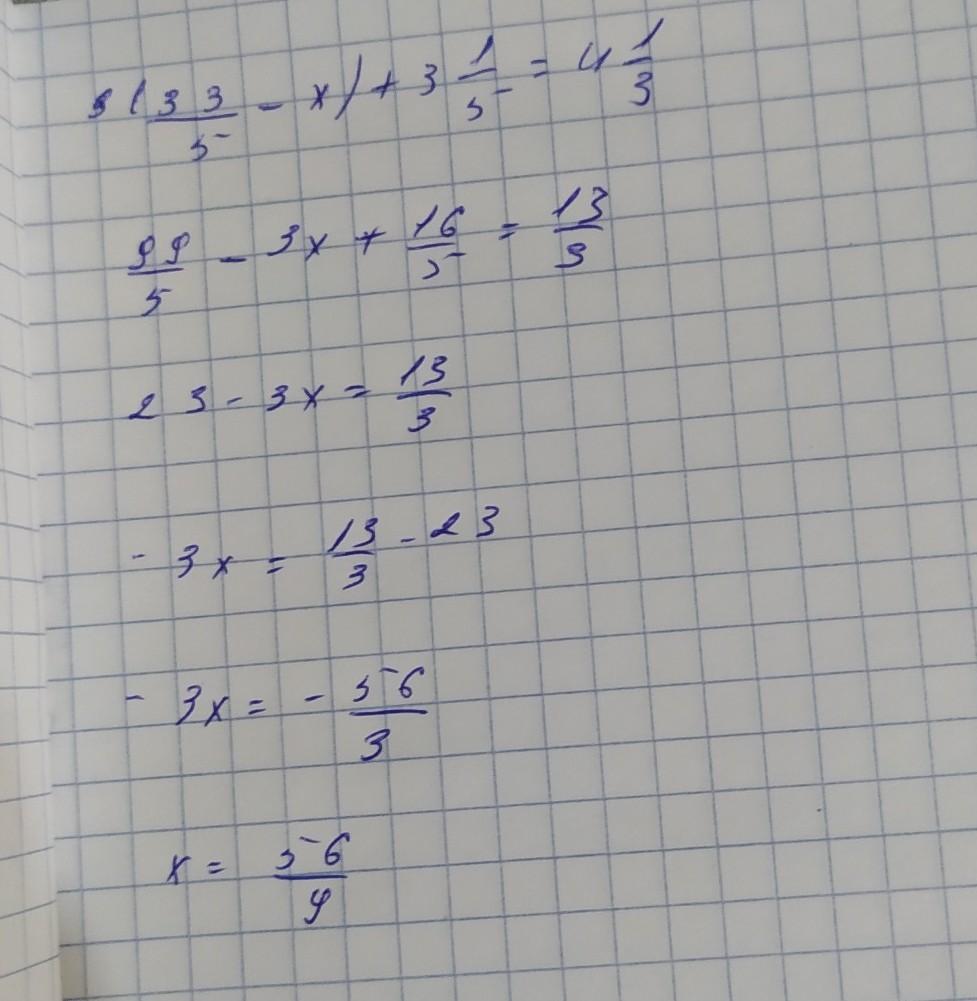 3(33/5 - x) + 3 1/5 = 4 1/3
99/5 - 3x + 16/5 = 13/3
23 - 3x = 13/3
- 3x = 13/3 - 23
- 3x = - 56/3
x = 56/9